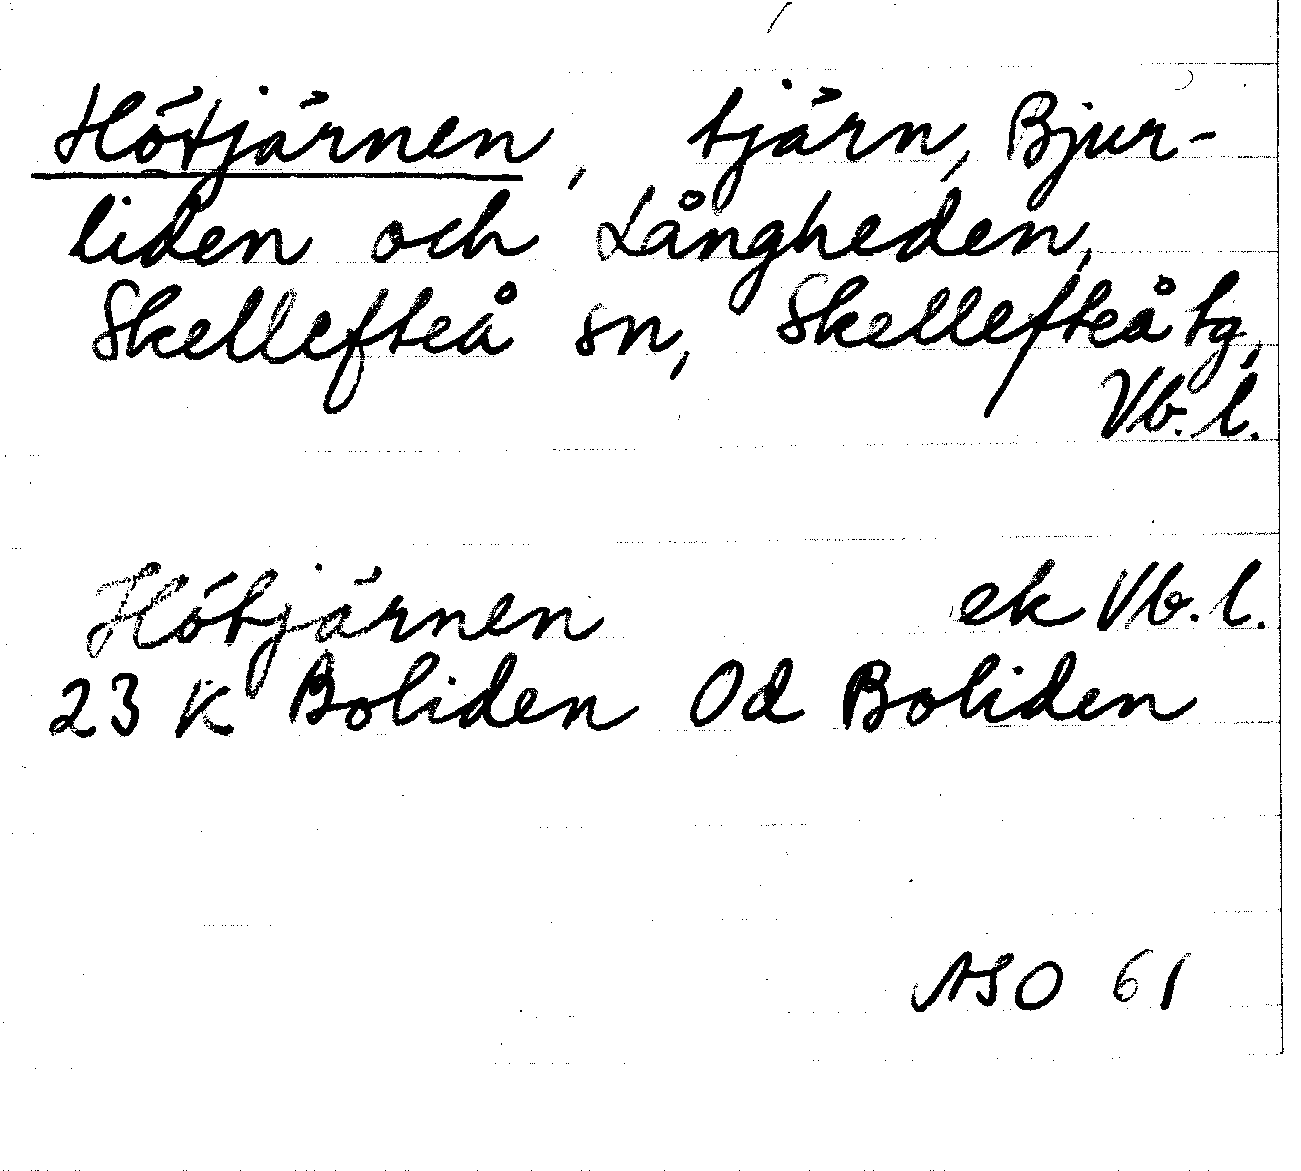 Hötjärnen, tjärn, Bjur-
liden och Långheden,
Skellefteå sn, Skellefteå tg,
Vb. l.
Hötjärnen ek Vb. l.
23 K Boliden Od Boliden
ASO 61